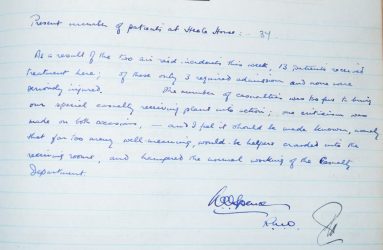 Present number of patients at Heale House:- 34.
As a result of the two air raid incidents this week, 13 patients received
treatment here; of these only 3 required admission and none were
seriously injured. The number of casualties was too few to bring
our special casualty receiving plant into action; one criticism was
made on both occasions, — and I feel it should be made known, namely
that far too many well-meaning, would be helpers crowded into the
receiving rooms, and hampered the normal working of the Casualty
Department.
R.M.O.